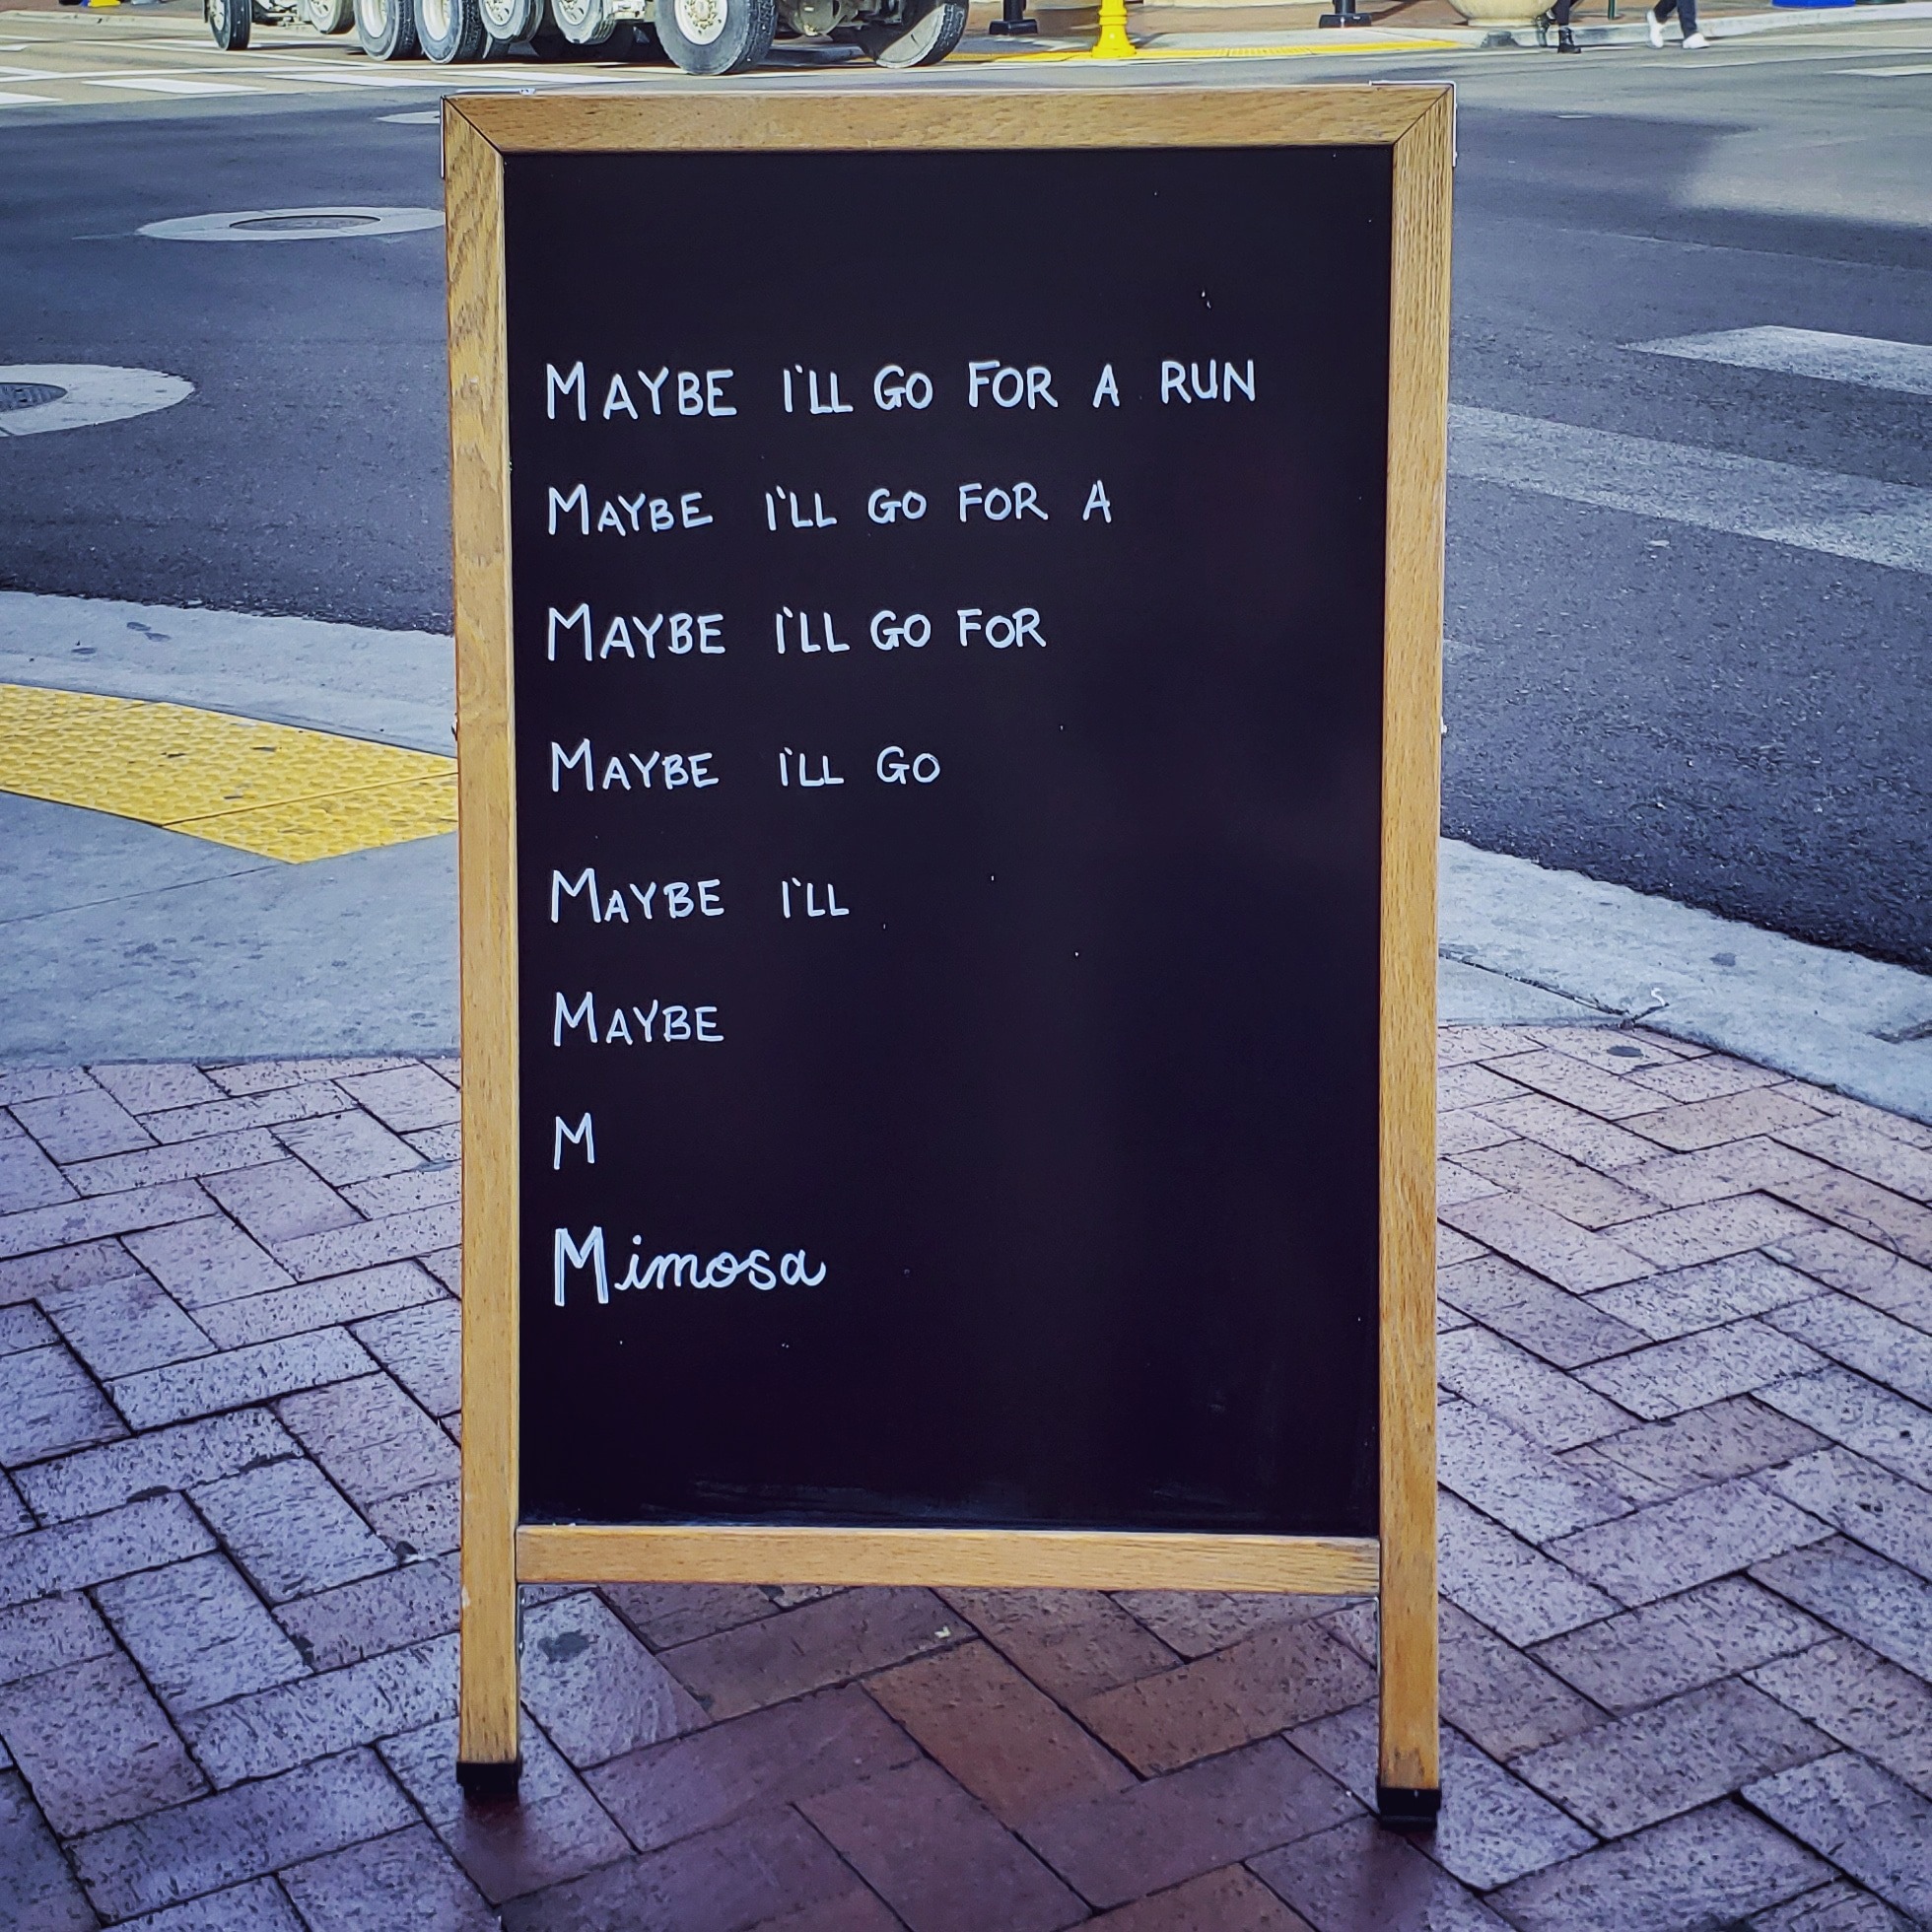 MAYBE I'LL GO FOR A RUN
MAYBE I'LL GO FOR A
MAYBE I'LL GO FOR
MAYBE I'LL GO
MAYBE I'LL
MAYBE
M
Mimosa